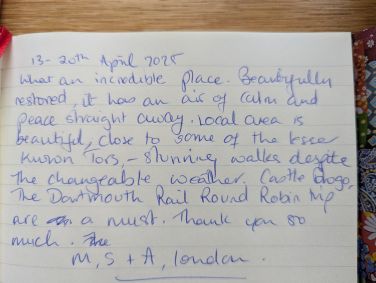 13 - 20th April 2025
What an incredible place. Beautifully
restored, it has an air of calm and
peace straight away. Local area is
beautiful, close to some of the lesser
known Tors, - stunning walks despite
the changeable weather. Castle Drogo,
The Dartmouth Rail Round Robin trip
are a must. Thank you so
much. The
M, S + A, London.